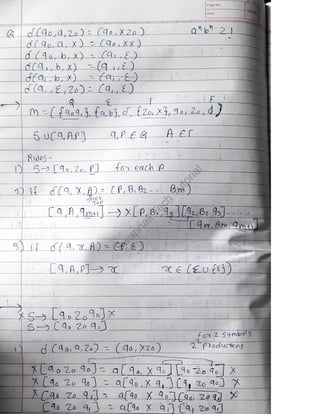 Page No.
Date
Q. δ(q0, a, z0) = (q0, xz0)   a^n b^n ≥ 1
δ(q0, a, x) = (q0, xx)
δ(q0, b, x) = (q1, ε)
δ(q1, b, x) = (q1, ε)
δ(q1, b, x) = (q1, ε)
δ(q1, ε, z0) = (q1, ε)
Q Σ Γ F
M = ({q0q1}, {a,b}, δ, {z0, x}, q0, z0, ϕ)
S∪[q,Ap] q,p∈Q A∈Γ
Rules -
1) S→[q0, z0, P] for each p
2) if δ(q, x, A) = (P, B1 B2 ... Bm)
[q, A, qm+1] → x[P, B1, q2][q2, B2, q3] ....
[qm, Bm, qm+1]
3) if δ(q, x, A) = (P, ε)
[q, A, P] → x   x ∈ (Σ∪{ε})
x S→ [q0 z0 q0] x
S→ [q0 z0 q1]
for 2 symbols
2² productions
1) δ(q0, a, z0) = (q0, xz0)
x [q0 z0 q0] = a[q0 x q0] [q0 z0 q0] x
x [q0 z0 q0] = a[q0 x q1] [q1 z0 q0] x
x [q0 z0 q1] = a[q0 x q0] [q0 z0 q1] x
[q0 z0 q1] = a[q0 x q1] [q1 z0 q1]